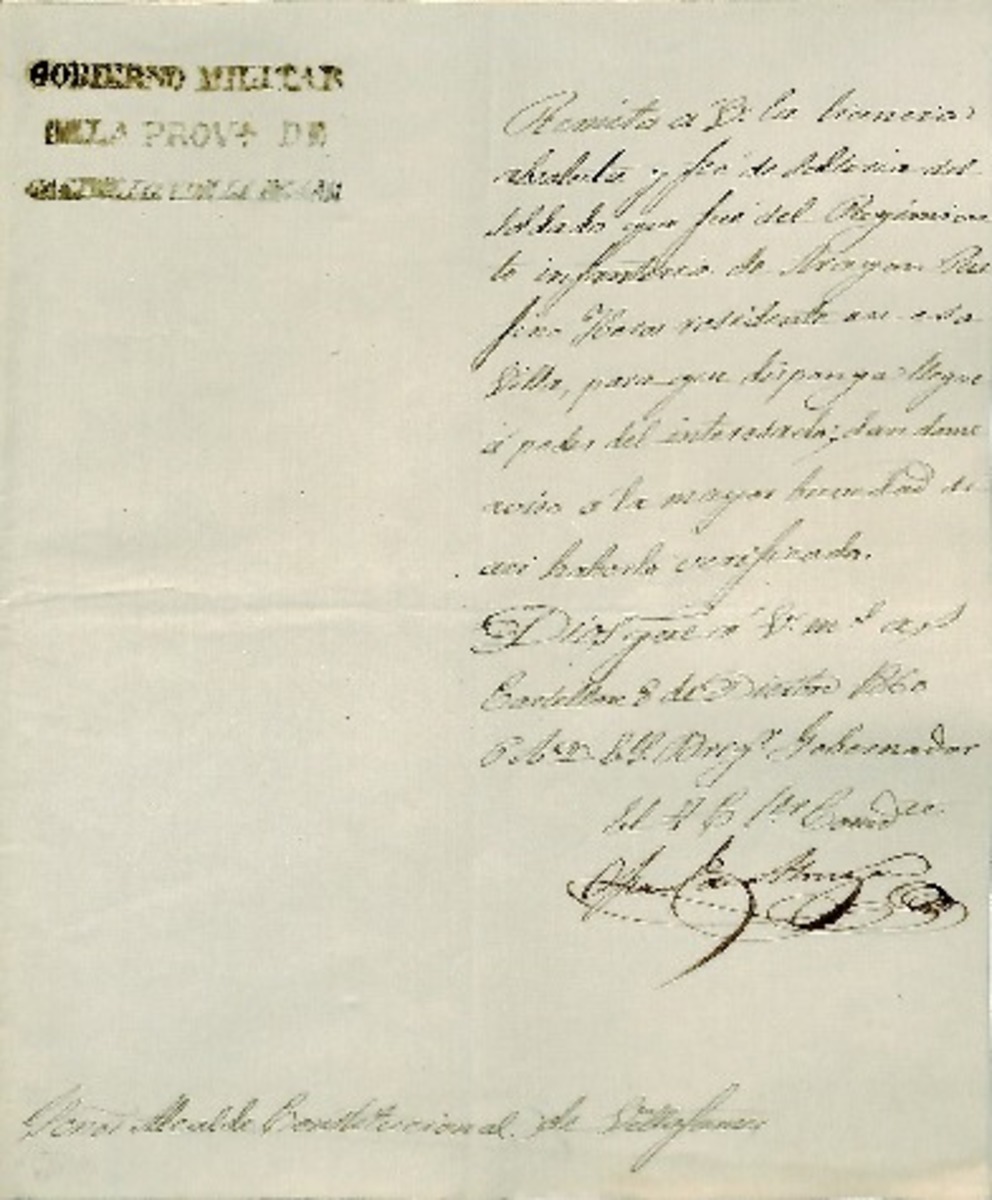 GOBIERNO MILITAR
DE LA PROVA DE
CASTELLON DE LA PLANA
Remito a V. la licencia
absoluta y fé de solteria del
soldado que fué del Regimien
to infanteria de Aragon Ru
fino residente en esa
Villa, para que disponga llegue
á poder del interesado; dandome
aviso a la mayor brevedad de
asi haberlo verificado.
Dios gue á V. ms. as
Castellon 8 de Dicbre 1860
El Gobernador
del
Señor Alcalde Constitucional de Villafames